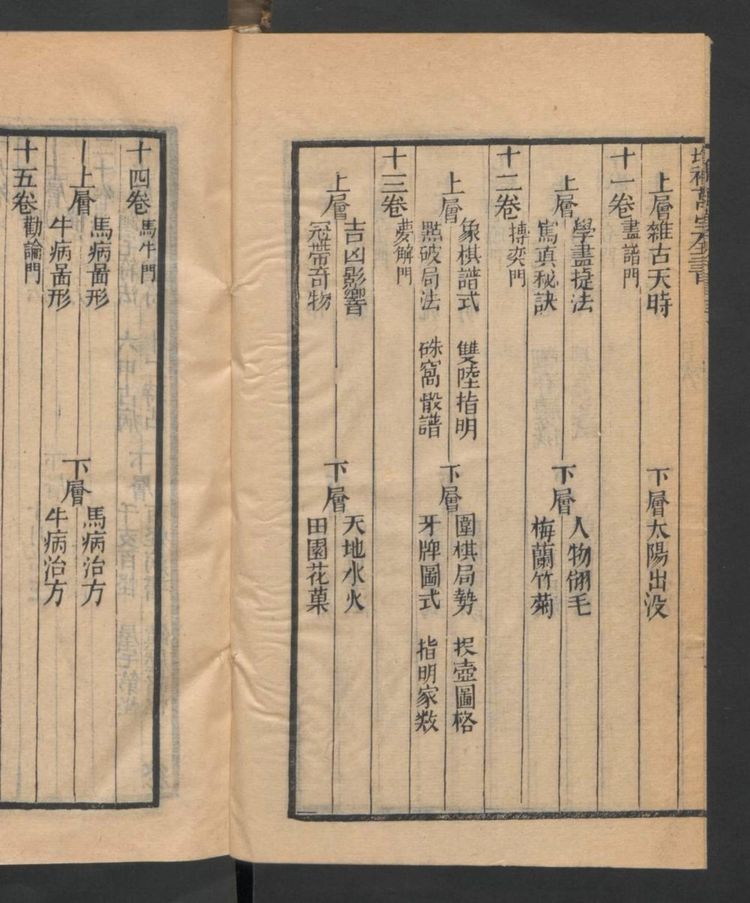 增補萬寶全書
上層雜占天時 下層太陽出没
十一卷畫譜門
上層 學畫捷法 寫真秘訣 下層 人物翎毛 梅蘭竹菊
十二卷博奕門
上層 象棋譜式 雙陸指明 點破局法 硃窩散譜 下層 圍棋局勢 投壺圖格 牙牌圖式 指明家数
十三卷夢解門
上層 吉凶影響 冠帶奇物 下層 天地水火 田園花菓
十四卷馬牛門
上層 馬病啚形 牛病啚形 下層 馬病治方 牛病治方
十五卷勸諭門